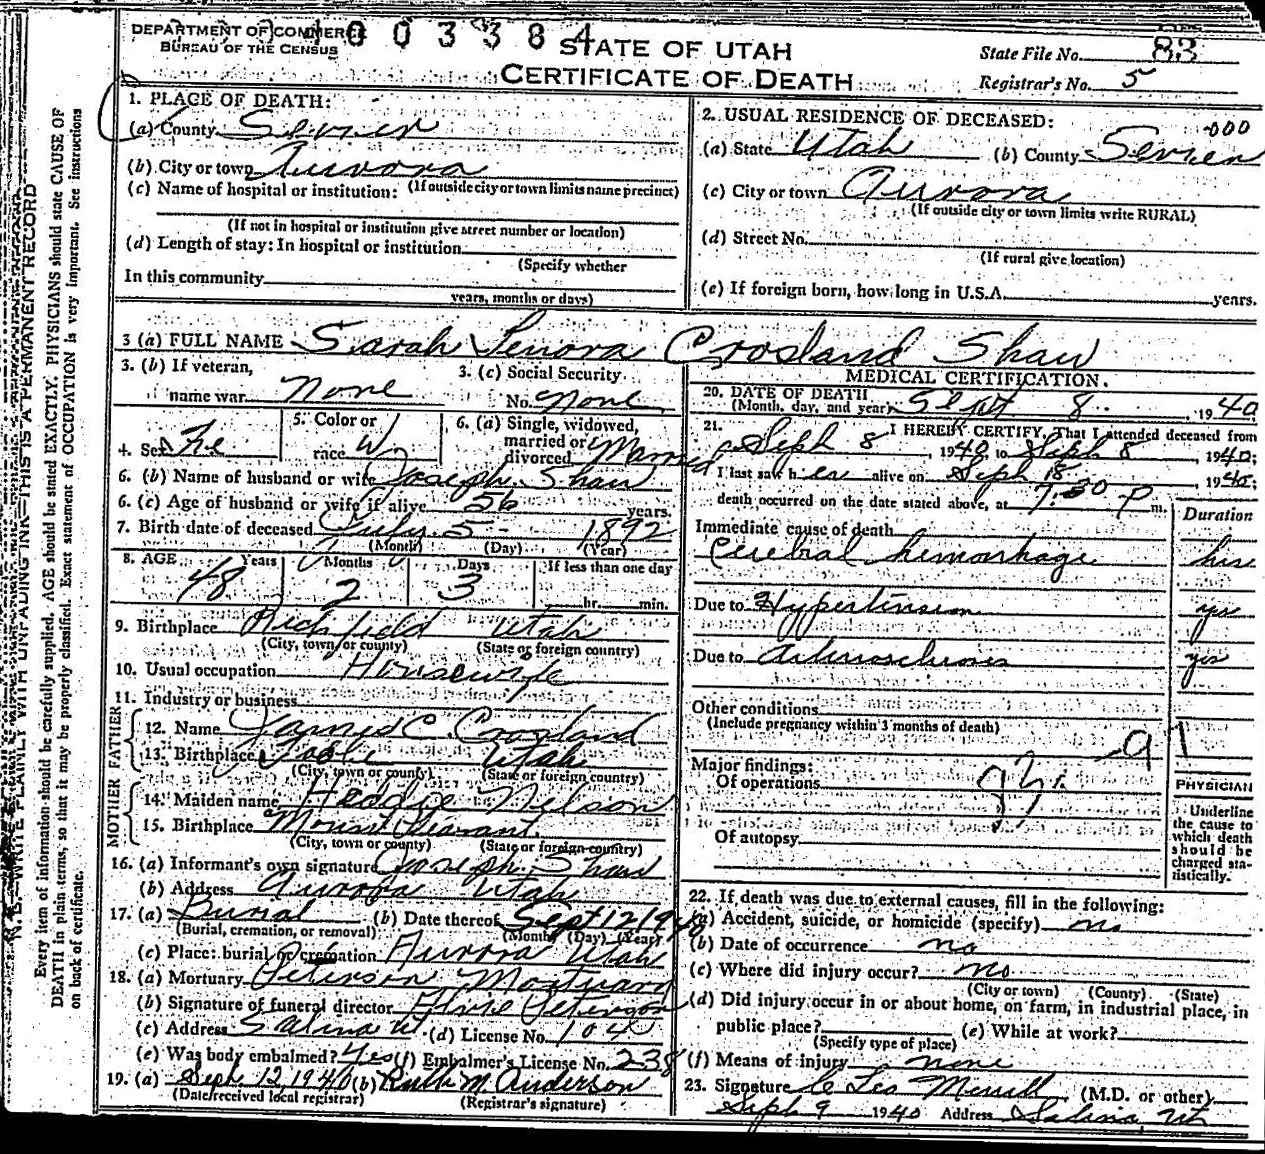 DEPARTMENT OF COMMERCE
BUREAU OF THE CENSUS
003384
STATE OF UTAH
CERTIFICATE OF DEATH
State File No. 83
Registrar's No. 5
N.B.—WRITE PLAINLY WITH UNFADING INK—THIS IS A PERMANENT RECORD
Every item of information should be carefully supplied. AGE should be stated EXACTLY. PHYSICIANS should state CAUSE OF
DEATH in plain terms, so that it may be properly classified. Exact statement of OCCUPATION is very important. See instructions
on back of certificate.
1. PLACE OF DEATH:
(a) County Sevier
(b) City or town Aurora
(c) Name of hospital or institution: (If outside city or town limits name precinct)
(If not in hospital or institution give street number or location)
(d) Length of stay: In hospital or institution
(Specify whether
In this community
years, months or days)
2. USUAL RESIDENCE OF DECEASED: -000
(a) State Utah (b) County Sevier
(c) City or town Aurora
(If outside city or town limits write RURAL)
(d) Street No.
(If rural give location)
(e) If foreign born, how long in U.S.A. years.
3 (a) FULL NAME Sarah Lenora Crosland Shaw
3. (b) If veteran,
name war None
3. (c) Social Security
No. None
4. Sex Fe
5. Color or
race W
6. (a) Single, widowed,
married or
divorced Married
6. (b) Name of husband or wife Joseph Shaw
6. (c) Age of husband or wife if alive 56 years.
7. Birth date of deceased July 5- 1892
(Month) (Day) (Year)
8. AGE Years Months Days If less than one day
48 2 3 hr. min.
9. Birthplace Richfield Utah
(City, town or county) (State or foreign country)
10. Usual occupation Housewife
11. Industry or business
FATHER
12. Name James C. Crosland
13. Birthplace Utah
(City, town or county) (State or foreign country)
MOTHER
14. Maiden name Nelson
15. Birthplace Mount Pleasant.
(City, town or county) (State or foreign country)
16. (a) Informant's own signature Joseph Shaw
(b) Address Aurora Utah
17. (a) Burial (b) Date thereof Sept 12 1940
(Burial, cremation, or removal) (Month) (Day) (Year)
(c) Place: burial or cremation Aurora Utah
18. (a) Mortuary Peterson Mortuary
(b) Signature of funeral director Peterson
(c) Address Salina Ut. (d) License No. 104
(e) Was body embalmed? Yes (f) Embalmer's License No. 238
19. (a) Sept. 12, 1940 (b) Ruth M. Anderson
(Date received local registrar) (Registrar's signature)
MEDICAL CERTIFICATION.
20. DATE OF DEATH
(Month, day, and year) Sept 8. , 1940
21. I HEREBY CERTIFY, That I attended deceased from
Sept 8 , 1940, to Sept 8 , 1940;
I last saw h er alive on Sept 8 , 1940;
death occurred on the date stated above, at 7:30 P m.
Duration
Immediate cause of death
Cerebral hemorrhage hrs
Due to Hypertension yrs
Due to Arteriosclerosis yrs
Other conditions
(Include pregnancy within 3 months of death)
Major findings:
Of operations
Of autopsy
PHYSICIAN
Underline
the cause to
which death
should be
charged sta-
tistically.
22. If death was due to external causes, fill in the following:
(a) Accident, suicide, or homicide (specify) no
(b) Date of occurrence no
(c) Where did injury occur? no
(City or town) (County) (State)
(d) Did injury occur in or about home, on farm, in industrial place, in
public place? (e) While at work?
(Specify type of place)
(f) Means of injury none
23. Signature Leo Merrill (M.D. or other)
Sept 9 1940 Address Salina, Ut